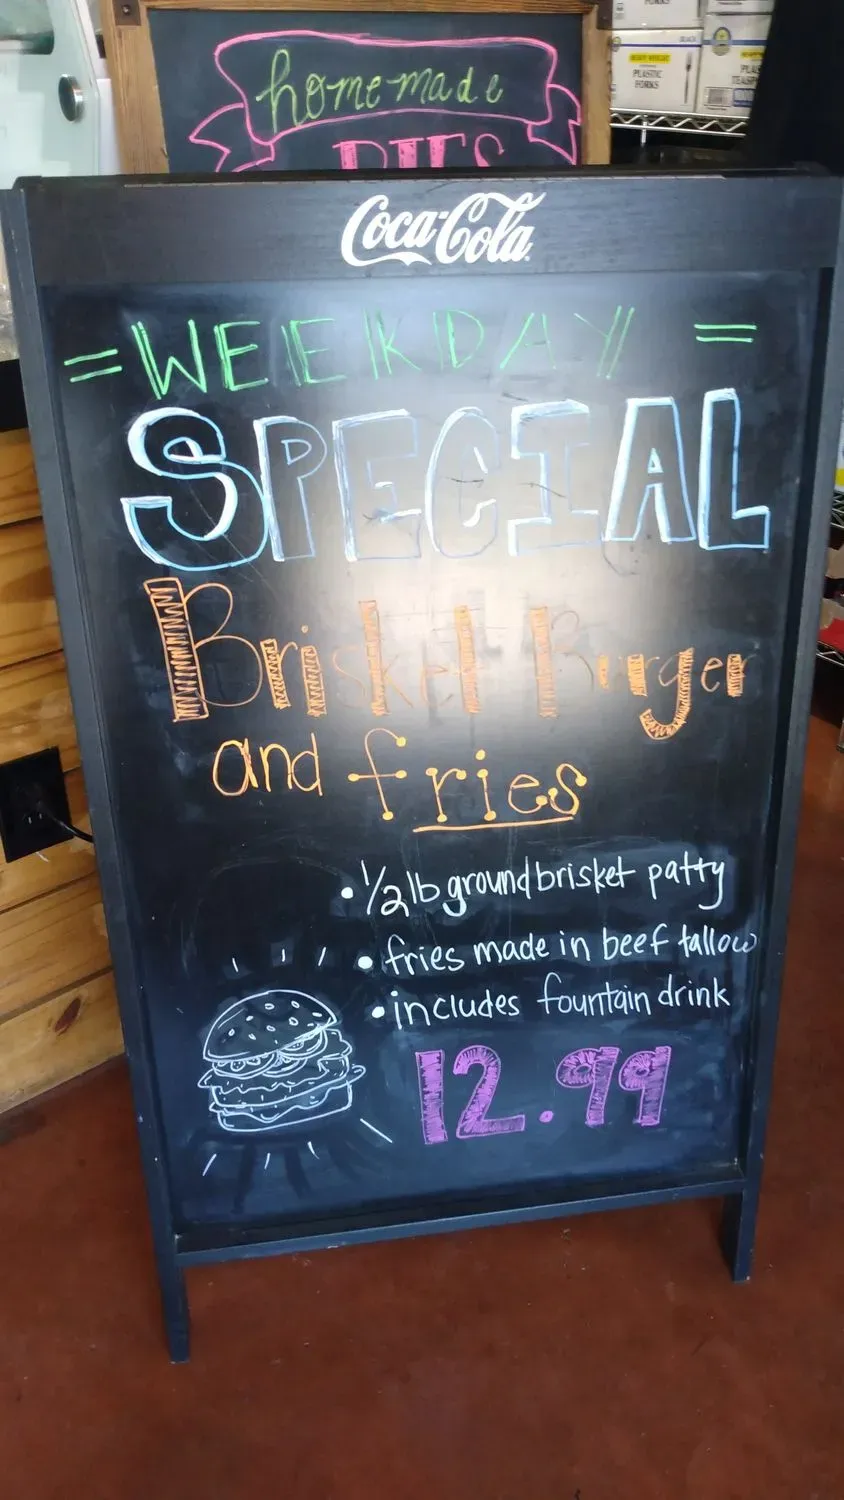 homemade
PIES
HEAVY WEIGHT
PLASTIC
FORKS
BLACK
Coca-Cola
= WEEKDAY =
SPECIAL
Brisket Burger
and fries
• 1/2 lb ground brisket patty
• fries made in beef tallow
• includes fountain drink
12.99